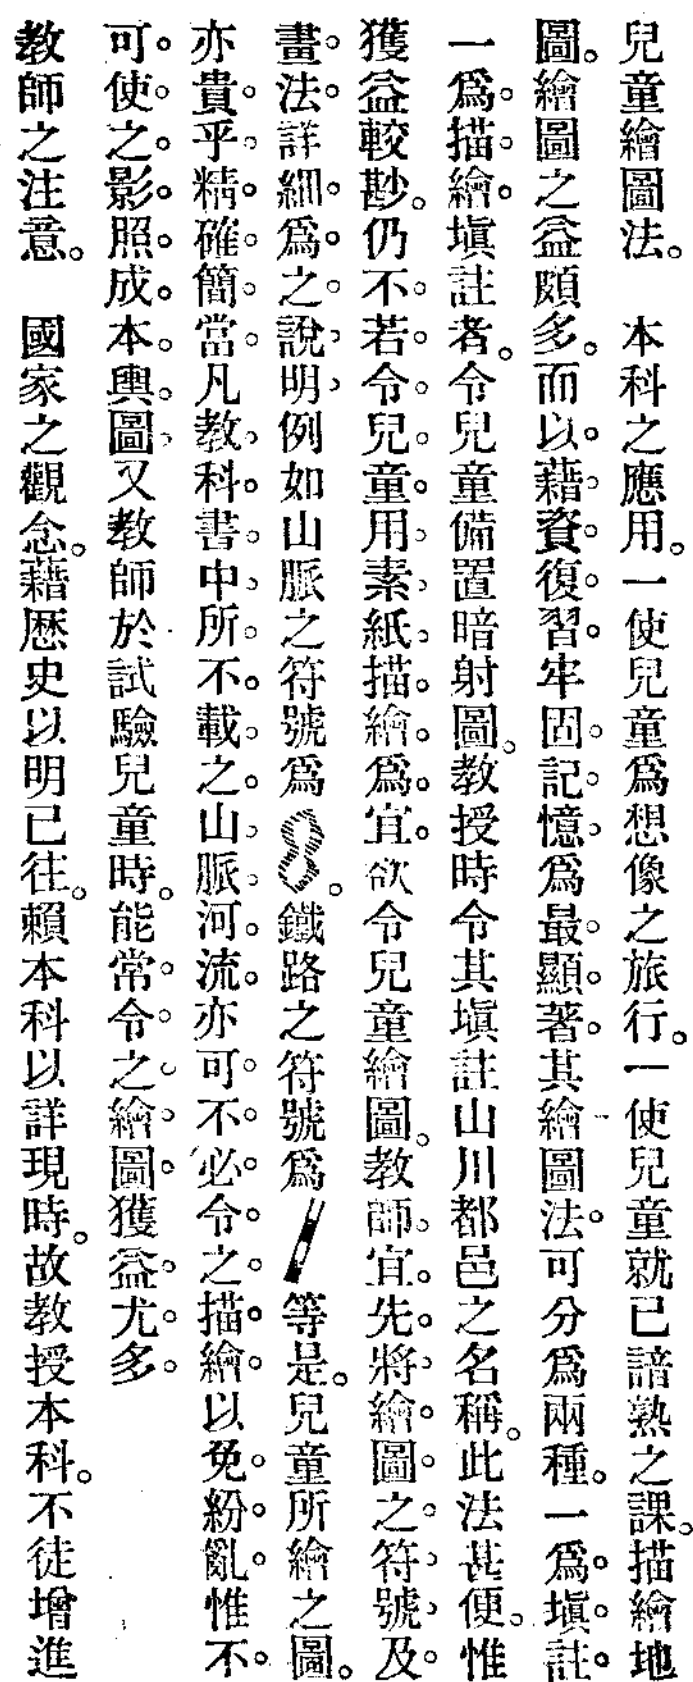 兒童繪圖法。　本科之應用。一使兒童爲想像之旅行。一使兒童就已諳熟之課。描繪地
圖。繪圖之益頗多。而以藉資復習。牢固記憶爲最顯著。其繪圖法。可分爲兩種。一爲塡註。
一爲描繪。塡註者。令兒童備置暗射圖。敎授時令其塡註山川都邑之名稱。此法甚便。惟
獲益較尠。仍不若令兒童用素紙描繪爲宜。欲令兒童繪圖。敎師宜先將繪圖之符號及
畫法。詳細爲之說明。例如山脈之符號爲。鐵路之符號爲等是。兒童所繪之圖。
亦貴乎精確簡當。凡敎科書中所不載之山脈河流。亦可不必令之描繪。以免紛亂。惟不
可使之影照成本輿圖。又敎師於試驗兒童時。能常令之繪圖。獲益尤多。
敎師之注意。　國家之觀念。藉歷史以明已往。賴本科以詳現時。故敎授本科。不徒增進